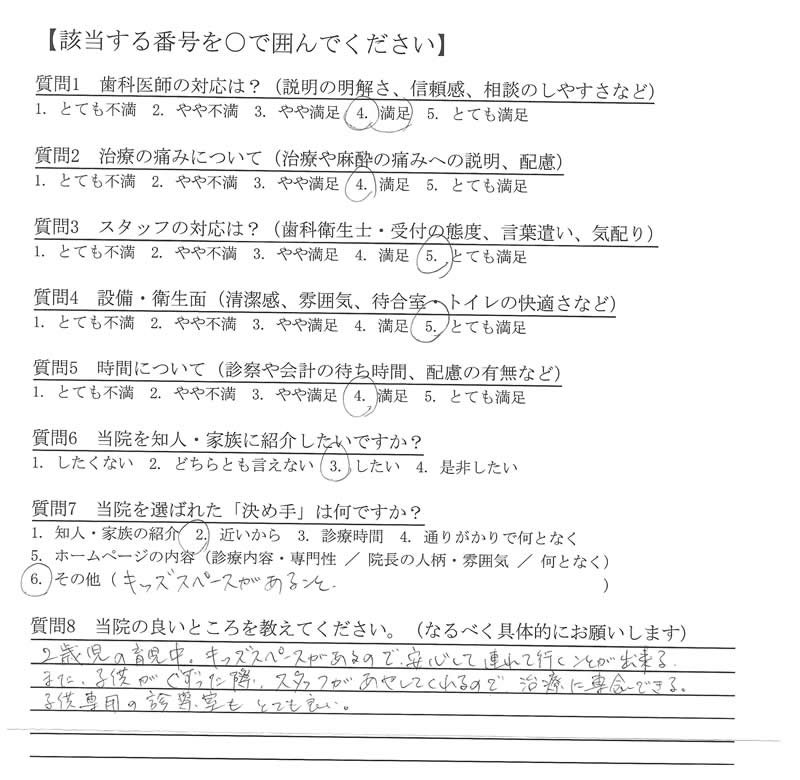 【該当する番号を〇で囲んでください】
質問1 歯科医師の対応は？（説明の明解さ、信頼感、相談のしやすさなど）
1. とても不満 2. やや不満 3. やや満足 4. 満足 5. とても満足
質問2 治療の痛みについて（治療や麻酔の痛みへの説明、配慮）
1. とても不満 2. やや不満 3. やや満足 4. 満足 5. とても満足
質問3 スタッフの対応は？（歯科衛生士・受付の態度、言葉遣い、気配り）
1. とても不満 2. やや不満 3. やや満足 4. 満足 5. とても満足
質問4 設備・衛生面（清潔感、雰囲気、待合室・トイレの快適さなど）
1. とても不満 2. やや不満 3. やや満足 4. 満足 5. とても満足
質問5 時間について（診察や会計の待ち時間、配慮の有無など）
1. とても不満 2. やや不満 3. やや満足 4. 満足 5. とても満足
質問6 当院を知人・家族に紹介したいですか？
1. したくない 2. どちらとも言えない 3. したい 4. 是非したい
質問7 当院を選ばれた「決め手」は何ですか？
1. 知人・家族の紹介 2. 近いから 3. 診療時間 4. 通りがかりで何となく
5. ホームページの内容（診療内容・専門性 ／ 院長の人柄・雰囲気 ／ 何となく）
6. その他（キッズスペースがあること. ）
質問8 当院の良いところを教えてください。（なるべく具体的にお願いします）
2歳児の育児中。キッズスペースがあるので、安心して連れて行くことが出来る.
また、子供がぐずった際、スタッフがあやしてくれるので 治療に専念できる。
子供専用の診察室も とても良い。